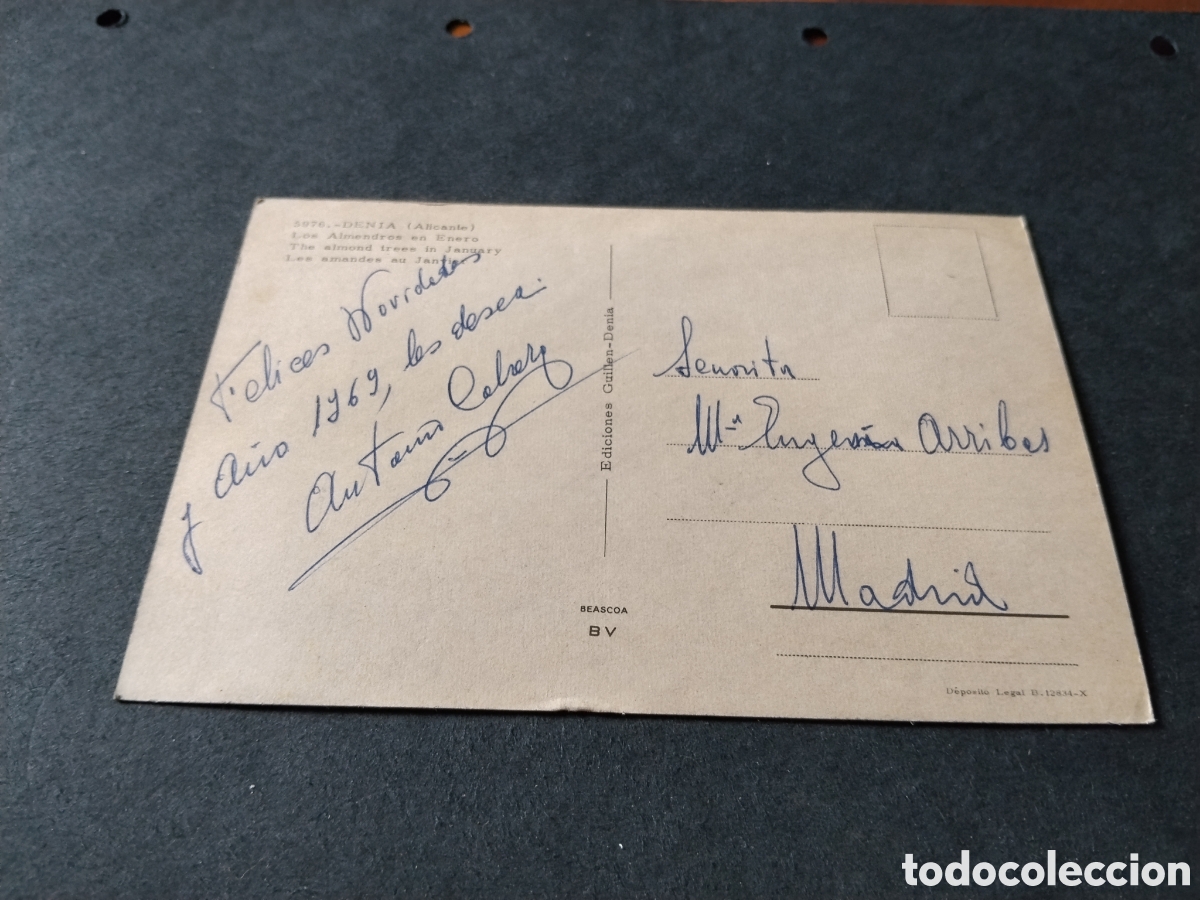 5976.-DENIA (Alicante)
Los Almendros en Enero
The almond trees in January
Les amandes au Janvier
Felices Navidades
y Año 1969, les desea
Antonio
Ediciones Guillen-Denia
BEASCOA
BV
Señorita
Mª Eugenia Arribas
Madrid
Déposito Legal B.12834-X
todocoleccion